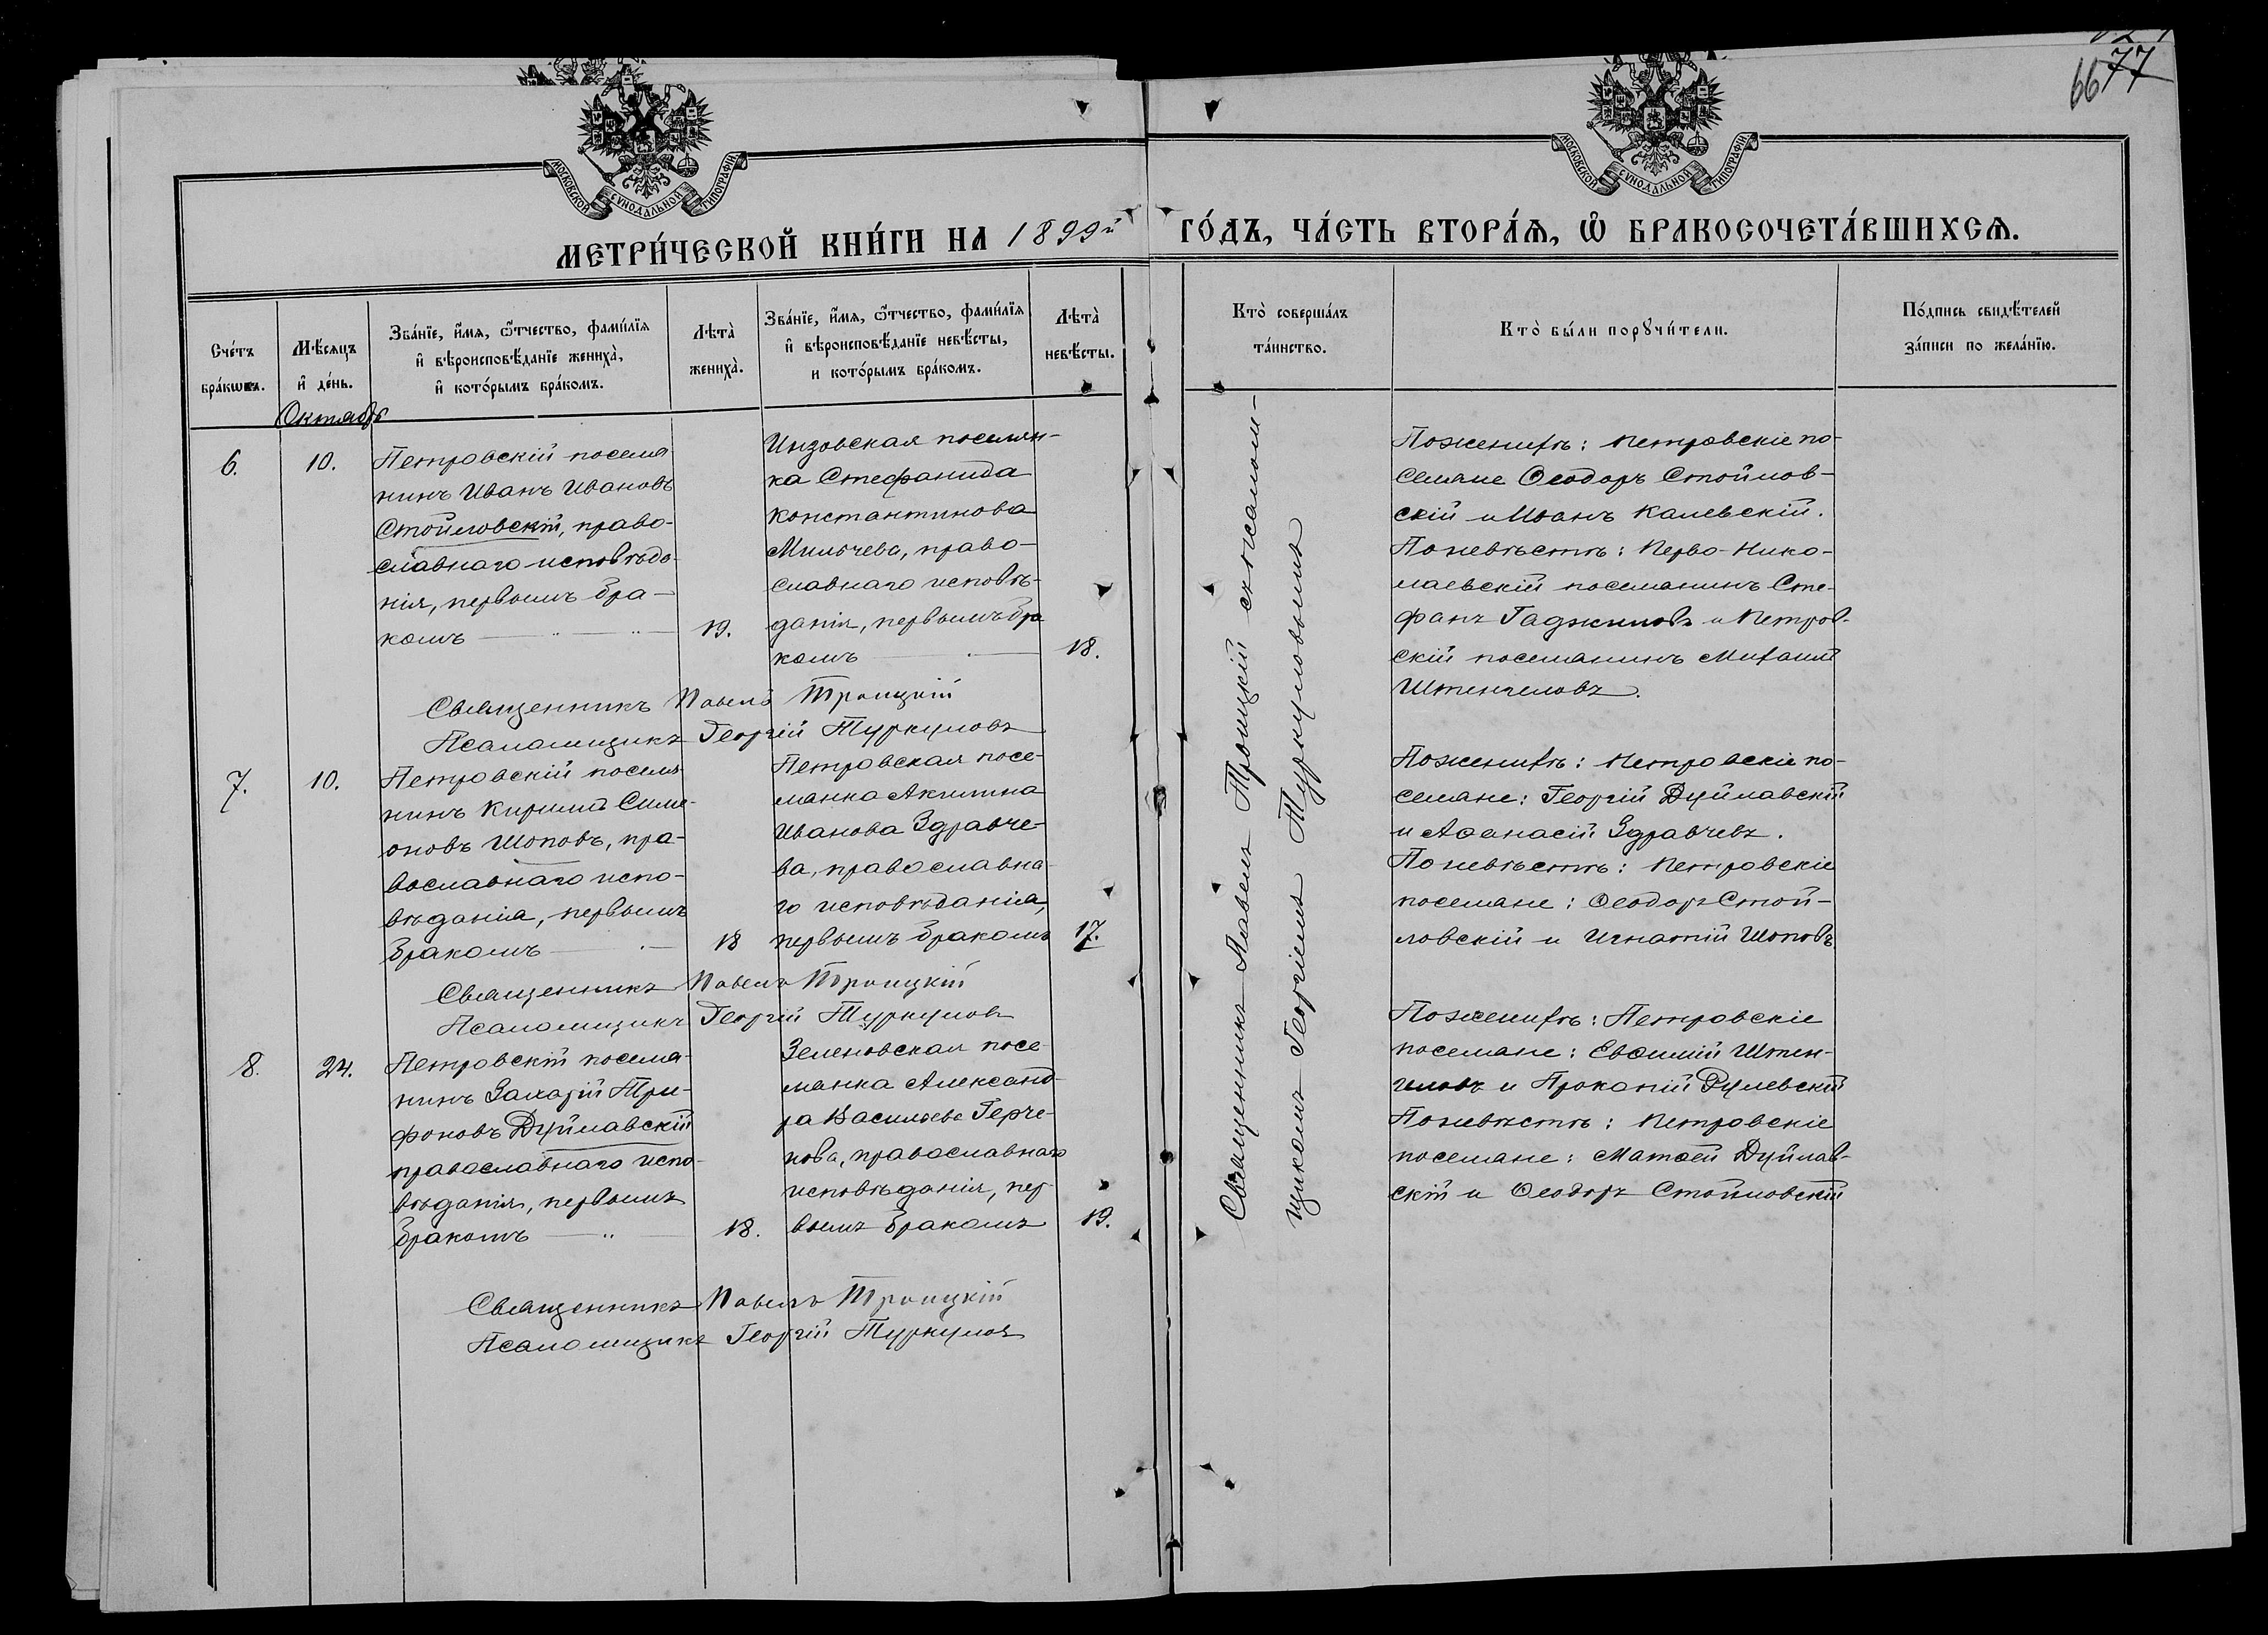 66 77
МОСКОВСКОЙ СУНОДАЛЬНОЙ ТИПОГРАФІИ
МОСКОВСКОЙ СУНОДАЛЬНОЙ ТИПОГРАФІИ
МЕТРИ́ЧЕСКОЙ КНИ́ГИ НА 1899й ГО́ДЪ, ЧА́СТЬ ВТОРА́Я, Ѡ БРАКОСОЧЕТА́ВШИХСЯ.
Сче́тъ
бра́кѡвъ.
Мѣ́сяцъ
и҆ де́нь.
Зва́нїе, и҆́мя, ѻ҆́тчество, фами́лїя
и҆ вѣроисповѣ́данїе жениха̀,
и҆ кото́рымъ бра́комъ.
Лѣта̀
жениха̀.
Зва́нїе, и҆́мя, ѻ҆́тчество, фами́лїя
и҆ вѣроисповѣ́данїе невѣ́сты,
и кото́рымъ бра́комъ.
Лѣта̀
невѣ́сты.
Кто̀ соверша́лъ
та́инство.
Кто̀ бы́ли порꙋчи́тели.
По́дпись свидѣ́телей
за́писи по жела́нїю.
Октябрь
6.
10.
Петровскій поселя-
нинъ Иванъ Ивановъ
Стойловскій, право-
славнаго исповѣда-
нія, первымъ бра-
комъ
19.
Инзовская поселян-
ка Стефанида
Константинова
Мильчева, право-
славнаго исповѣ-
данія, первымъ бра
комъ
18.
Священникъ Павелъ Троицкій
Псаломщикъ Георгій Туркуловъ
По женихѣ: Петровскіе по-
селяне Ѳеодоръ Стойлов-
скій и Иванъ Калевскій.
По невѣстѣ: Перво-Нико-
лаевскій поселянинъ Сте-
фанъ Гаджиловъ и Петров-
скій поселянинъ Михаилъ
Штенгеловъ.
7.
10.
Петровскій поселя-
нинъ Кириллъ Симе-
оновъ Шоповъ, пра-
вославнаго испо-
вѣданія, первымъ
бракомъ
18
Петровская посе-
лянка Акилина
Иванова Здравче-
ва, православна-
го исповѣданія,
первымъ бракомъ
17.
Священникъ Павелъ Троицкій
Псаломщикъ Георгій Туркуловъ
По женихѣ: Петровскіе по-
селяне: Георгій Дуйлавскій
и Аѳанасій Здравчевъ.
По невѣстѣ: Петровскіе
поселяне: Ѳеодоръ Стой-
ловскій и Игнатій Шоповъ
8.
24.
Петровскій поселя-
нинъ Захарій Три-
фоновъ Дуйлавскій
православнаго испо-
вѣданія, первымъ
бракомъ
18.
Зеленовская посе-
лянка Александ-
ра Васильева Герче-
нова, православнаго
исповѣданія, пер-
вымъ бракомъ
19.
Священникъ Павелъ Троицкій
Псаломщикъ Георгій Туркуловъ
По женихѣ: Петровскіе
поселяне: Евѳимій Штен-
геловъ и Прокопій Дулевскій
По невѣстѣ: Петровскіе
поселяне: Матѳей Дуйлав-
скій и Ѳеодоръ Стойловскій
Священникъ Павелъ Троицкій съ псалом-
щикомъ Георгіемъ Туркуловымъ